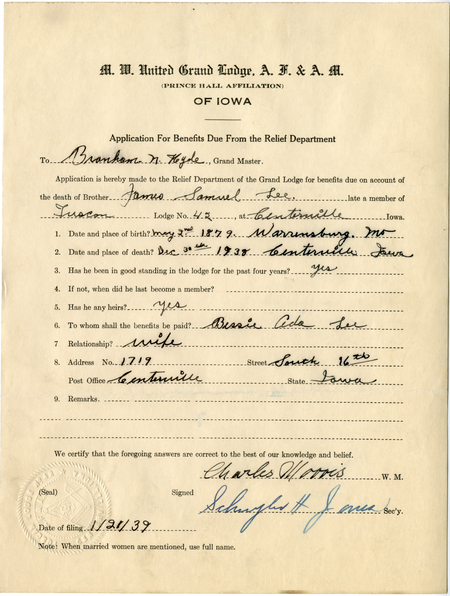 M. W. United Grand Lodge, A. F. & A. M.
(PRINCE HALL AFFILIATION)
OF IOWA
Application For Benefits Due From the Relief Department
To Branham N. Hyde, Grand Master.
Application is hereby made to the Relief Department of the Grand Lodge for benefits due on account of
the death of Brother James Samuel Lee, late a member of
Tuscan Lodge No. 42, at Centerville Iowa.
1. Date and place of birth? May 2nd 1879 Warrensburg. Mo
2 Date and place of death? Dec 30th 1938 Centerville Iowa
3. Has he been in good standing in the lodge for the past four years? yes
4. If not, when did he last become a member?
5. Has he any heirs? yes
6. To whom shall the benefits be paid? Bessie Ada Lee
7 Relationship? wife
8. Address No. 1719 Street South 16th
Post Office Centerville State Iowa
9. Remarks.
We certify that the foregoing answers are correct to the best of our knowledge and belief.
Charles Morris W. M.
(Seal) Signed
Schuyler H Jones Sec'y.
Date of filing 1/20/39
Note: When married women are mentioned, use full name.